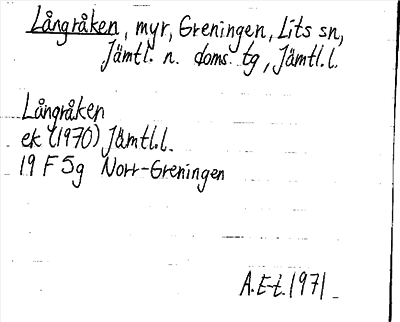 Långråken, myr, Greningen, Lits sn,
Jämtl. n. doms. tg, Jämtl.l.
Långråken
ek (1970) Jämtl.l.
19 F 5g Norr-Greningen
A.E-t. 1971